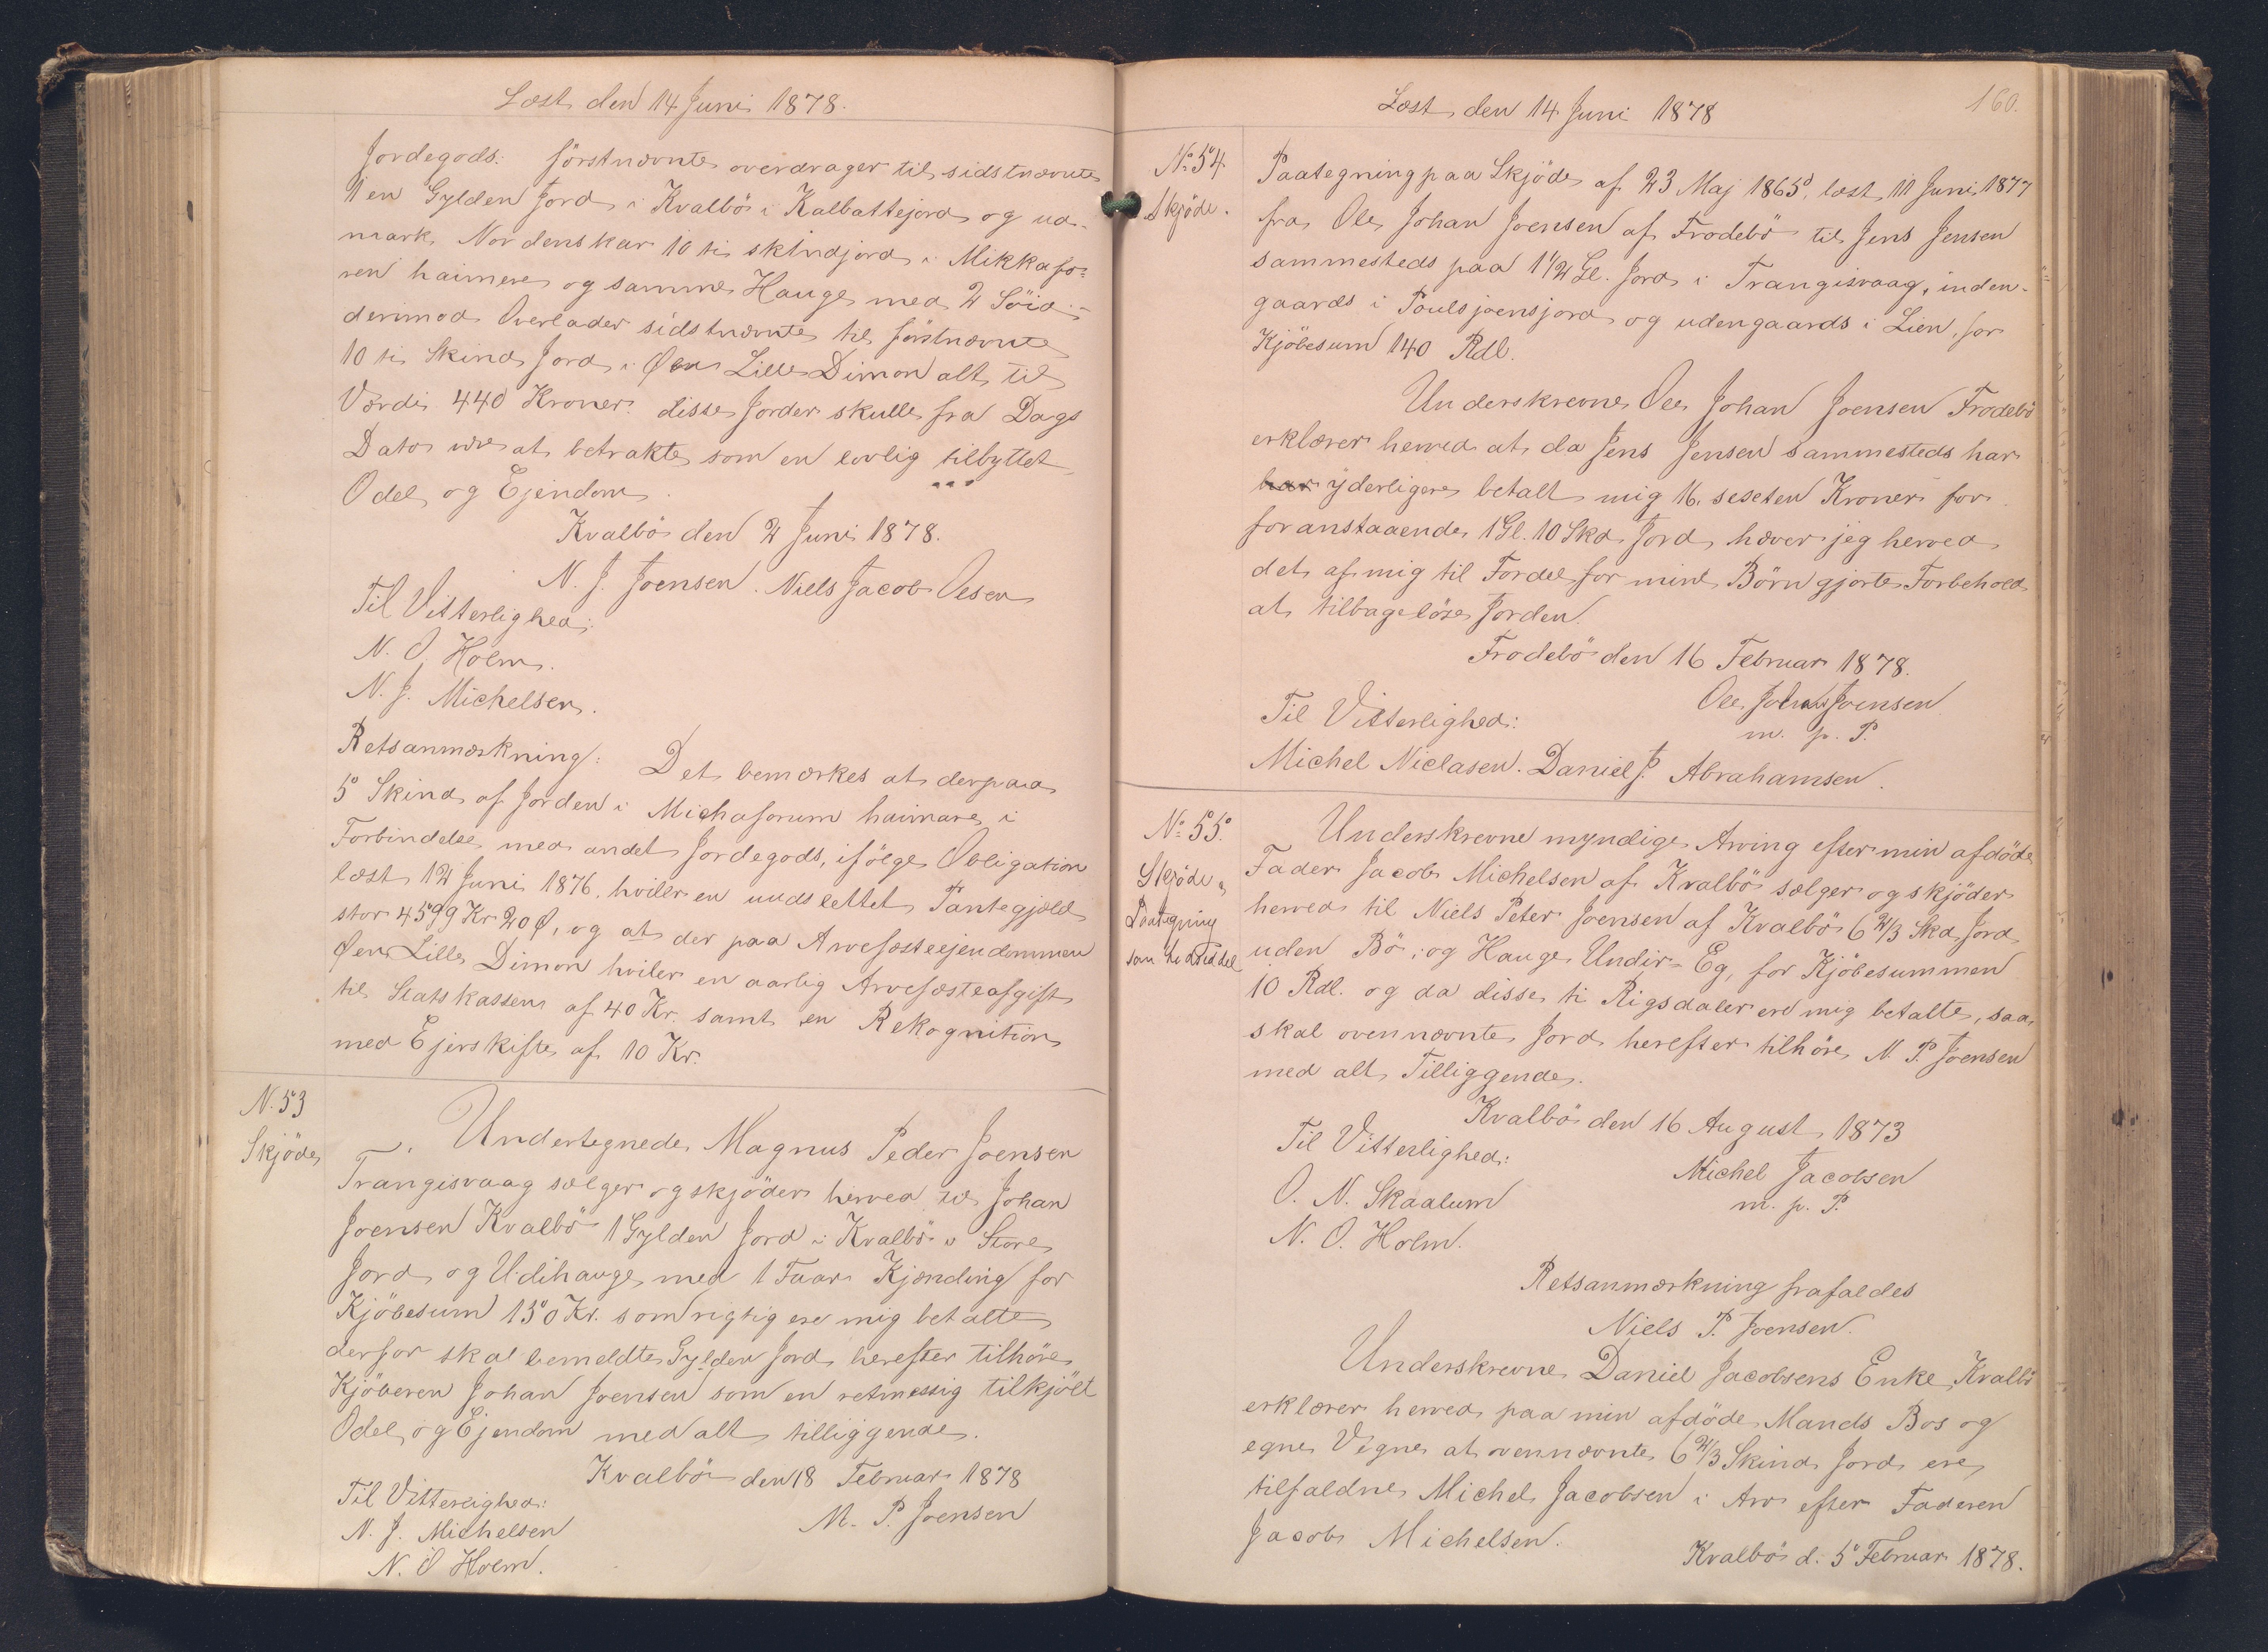 Læst den 14 Juni 1878.
Jordegods: förstnævnte overdrager til sidstnævnte
1 en Gylden Jord i Kvalbö i Kalbattejord og ud-
mark Nordenskar 10 ti skindjord i Mikkafo-
ren haimere og samme Hauge med 2 Söid-
derimod Overlader sidstnævnte til förstnævnte
10 ti Skind Jord i Øen Lille Dimon alt til
Værdi 440 Kroner. disse Jorder skulle fra Dags
Dato være at betrakte som en lovlig tilbyttet
Odel og Ejendom.
Kvalbö den 2 Juni 1878.
N. J. Joensen. Niels Jacob Olsen
Til Vitterlighed:
N. O. Holm.
N. J. Michelsen.
Retsanmærkning: Det bemærkes at der paa
5 Skind af Jorden i Michaforum haimare, i
Forbindelse med andet Jordegods, ifölge Obligation
læst 12 Juni 1876, hviler en uudslettet Pantegjæld
stor 4599 Kr 20 Ø, og at der paa Arvefæsteejendommen
Øen Lille Dimon hviler en aarlig Arvefæsteafgift
til Statskassen af 40 Kr. samt en Rekognition
med Ejerskifte af 10 Kr.
N. 53
Skjöde
Undertegnede Magnus Peder Joensen
Trangisvaag sælger og skjöder herved til Johan
Joensen Kvalbö 1 Gylden Jord i Kvalbö i Store
Jord og Udihauge med 1 Faar Kjending for
Kjöbesum 130 Kr. som rigtig ere mig betalte
derfor skal bemeldte Gylden Jord herefter tilhöre
Kjöberen Johan Joensen som en retmessig tilkjölt
Odel og Ejendom med alt tilliggende.
Kvalbö den 18 Februar 1878
Til Vitterlighed:
M. P. Joensen
N. J. Michelsen
N. O Holm.
Læst den 14 Juni 1878
160.
No. 54
Skjöde.
Paategning paa Skjöde af 23 Maj 1865, læst 11 Juni 1877
fra Ole Johan Joensen af Frodebö til Jens Jensen
sammesteds paa 1 1/2 Gl. Jord i Trangisvaag, inden-
gaards i Poulsjoensjord og udengaards i Lien, for
Kjöbesum 140 Rdl.
Underskrevne Ole Johan Joensen Frodebö
erklærer herved at da Jens Jensen sammesteds har
har yderligere betalt mig 16. sesten Kroner for
foranstaaende 1 Gl. 10 Skd. Jord, hæver jeg herved
det af mig til Fordel for mine Börn gjorte Forbehold
at tilbagelöse Jorden.
Frodebö den 16 Februar 1878.
Ole Johan Joensen
m. p. P.
Til Vitterlighed:
Michel Niclasen. Daniel J. Abrahamsen.
No. 55.
Skjöde
Paategning
som
Underskrevne myndige Arving efter min afdöde
Fader Jacob Michelsen af Kvalbö sælger og skjöder
herved til Niels Peter Joensen af Kvalbö 6 2/3 Skd. Jord
uden Bö, og Hauge Undir-Eg, for Kjöbesummen
10 Rdl. og da disse ti Rigsdaler ere mig betalte, saa
skal ovennævnte Jord herefter tilhöre N. P. Joensen
med alt Tilliggende.
Kvalbö den 16 August 1873
Til Vitterlighed:
Michel Jacobsen
m. p. P.
O. N. Skaalum
N. O. Holm.
Retsanmærkning frafaldes
Niels P. Joensen.
Underskrevne Daniel Jacobsens Enke, Kvalbö
erklærer herved paa min afdöde Mands Bos og
egne Vegne at ovennævnte 6 2/3 Skind Jord ere
tilfaldne Michel Jacobsen i Arv efter Faderen
Jacob Michelsen.
Kvalbö d. 5 Februar 1878.